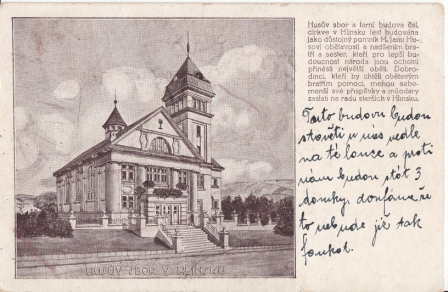 Husův sbor a farní budova čsl.
církve v Hlinsku jest budována
jako důstojný pomník M. Janu Hu-
sovi obětavostí a nadšením bratří
a sester, kteří pro lepší bu-
doucnost národa jsou ochotni
přinésti největší oběti. Dobro-
dinci, kteří by chtěli obětavým
bratřím pomoci, mohou sebe-
menší své příspěvky a milodary
zaslati na radu starších v Hlinsku.
Tuto budovu budou
stavěti u nás vedle
na té louce a proti
nám budou stát 3
domky, doufáme že
to nebude již tak
foukat.
HUSŮV SBOR V HLINSKU